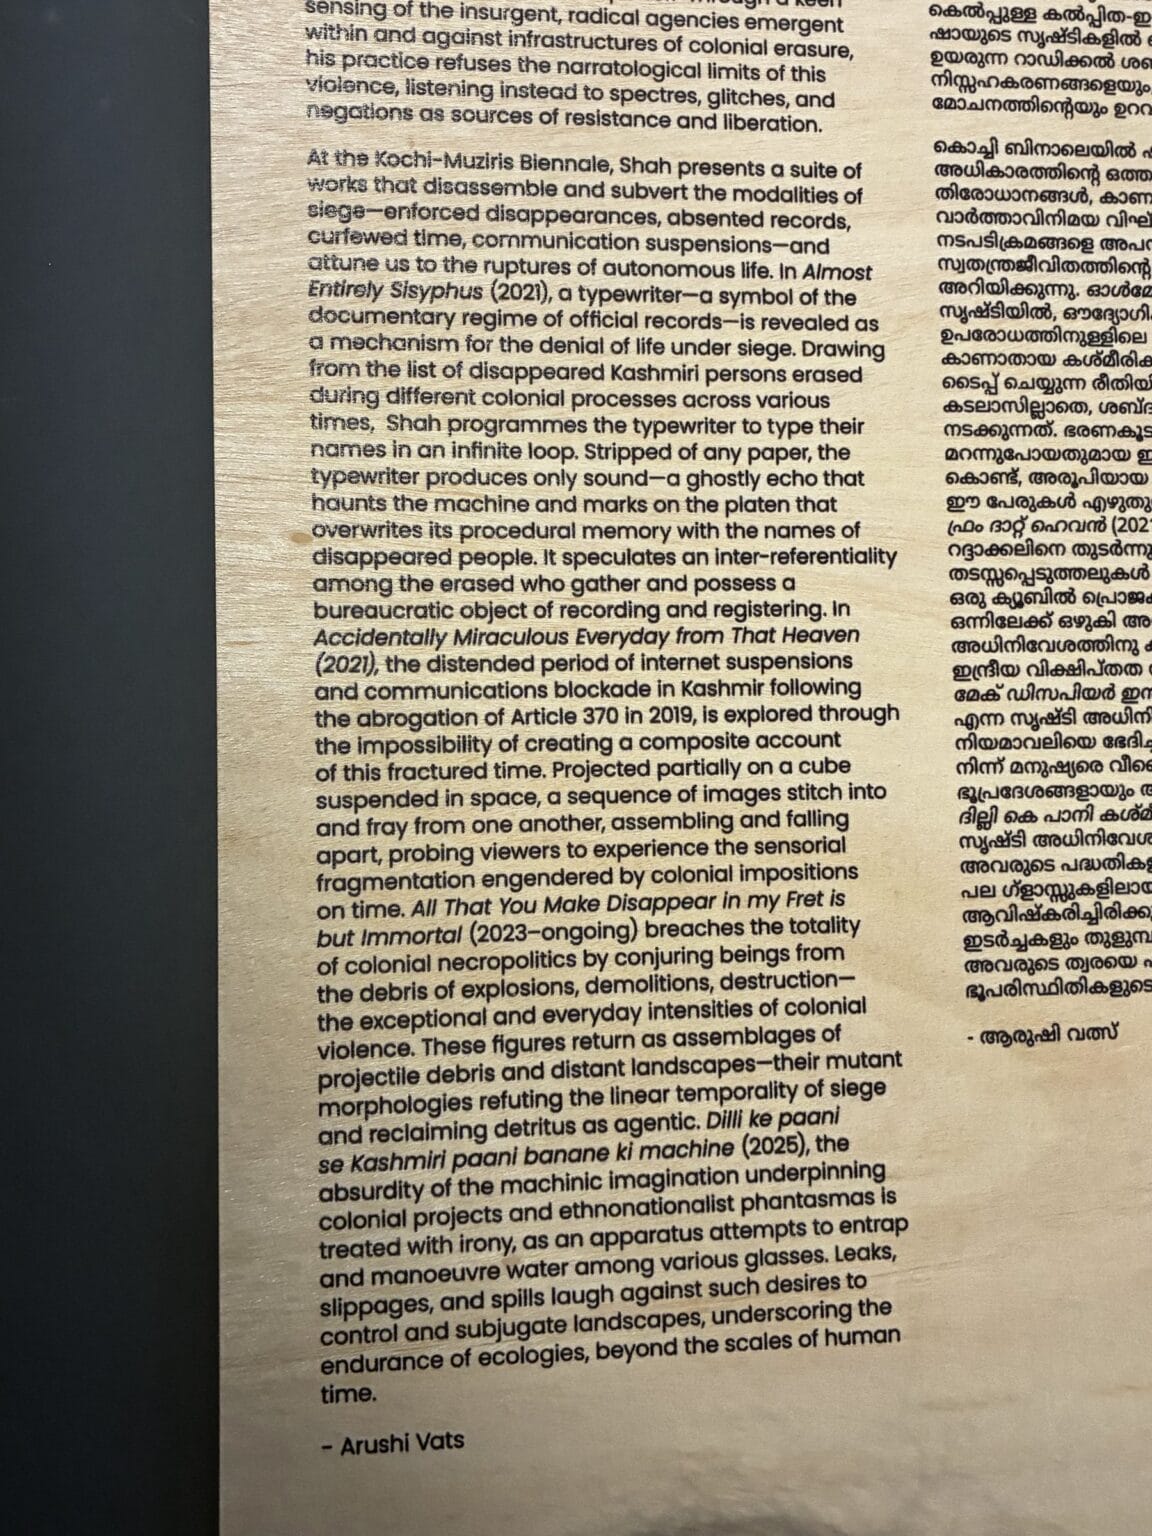 sensing of the insurgent, radical agencies emergent
within and against infrastructures of colonial erasure,
his practice refuses the narratological limits of this
violence, listening instead to spectres, glitches, and
negations as sources of resistance and liberation.
At the Kochi-Muziris Biennale, Shah presents a suite of
works that disassemble and subvert the modalities of
siege—enforced disappearances, absented records,
curfewed time, communication suspensions—and
attune us to the ruptures of autonomous life. In Almost
Entirely Sisyphus (2021), a typewriter—a symbol of the
documentary regime of official records—is revealed as
a mechanism for the denial of life under siege. Drawing
from the list of disappeared Kashmiri persons erased
during different colonial processes across various
times, Shah programmes the typewriter to type their
names in an infinite loop. Stripped of any paper, the
typewriter produces only sound—a ghostly echo that
haunts the machine and marks on the platen that
overwrites its procedural memory with the names of
disappeared people. It speculates an inter-referentiality
among the erased who gather and possess a
bureaucratic object of recording and registering. In
Accidentally Miraculous Everyday from That Heaven
(2021), the distended period of internet suspensions
and communications blockade in Kashmir following
the abrogation of Article 370 in 2019, is explored through
the impossibility of creating a composite account
of this fractured time. Projected partially on a cube
suspended in space, a sequence of images stitch into
and fray from one another, assembling and falling
apart, probing viewers to experience the sensorial
fragmentation engendered by colonial impositions
on time. All That You Make Disappear in my Fret is
but Immortal (2023–ongoing) breaches the totality
of colonial necropolitics by conjuring beings from
the debris of explosions, demolitions, destruction—
the exceptional and everyday intensities of colonial
violence. These figures return as assemblages of
projectile debris and distant landscapes—their mutant
morphologies refuting the linear temporality of siege
and reclaiming detritus as agentic. Dilli ke paani
se Kashmiri paani banane ki machine (2025), the
absurdity of the machinic imagination underpinning
colonial projects and ethnonationalist phantasmas is
treated with irony, as an apparatus attempts to entrap
and manoeuvre water among various glasses. Leaks,
slippages, and spills laugh against such desires to
control and subjugate landscapes, underscoring the
endurance of ecologies, beyond the scales of human
time.
– Arushi Vats
കെൽപ്പുള്ള കൽപ്പിത-ഇ
ഷായുടെ സൃഷ്ടികളിൽ
ഉയരുന്ന റാഡിക്കൽ
നിസ്സഹകരണങ്ങളെയും
മോചനത്തിന്റെയും
കൊച്ചി ബിനാലെയിൽ
അധികാരത്തിന്റെ
തിരോധാനങ്ങൾ,
വാർത്താവിനിമയ
നടപടിക്രമങ്ങളെ
സ്വതന്ത്രജീവിതത്തിന്റെ
അറിയിക്കുന്നു.
സൃഷ്ടിയിൽ,
ഉപരോധത്തിനുള്ളിലെ
കാണാതായ
ടൈപ്പ് ചെയ്യുന്ന
കടലാസില്ലാതെ,
നടക്കുന്നത്.
മറന്നുപോയതുമായ
കൊണ്ട്, അരൂപിയായ
ഈ പേരുകൾ
ഫ്രം ദാറ്റ് ഹെവൻ (202
റദ്ദാക്കലിനെ
തടസ്സപ്പെടുത്തലുകൾ
ഒരു ക്യൂബിൽ
ഒന്നിലേക്ക് ഒഴുകി
അധിനിവേശത്തിനു
ഇന്ദ്രീയ വിക്ഷിപ്തത
മേക് ഡിസപിയർ ഇൻ
എന്ന സൃഷ്ടി
നിയമാവലിയെ
നിന്ന് മനുഷ്യരെ
ഭൂപ്രദേശങ്ങളായും
ദില്ലി കെ പാനി
സൃഷ്ടി
അവരുടെ
പല ഗ്ളാസ്സുകളിലായ
ആവിഷ്കരിച്ചിരിക്കു
ഇടർച്ചകളും
അവരുടെ ത്വരയെ
ഭൂപരിസ്ഥിതികളുടെ
- ആരുഷി വത്സ്